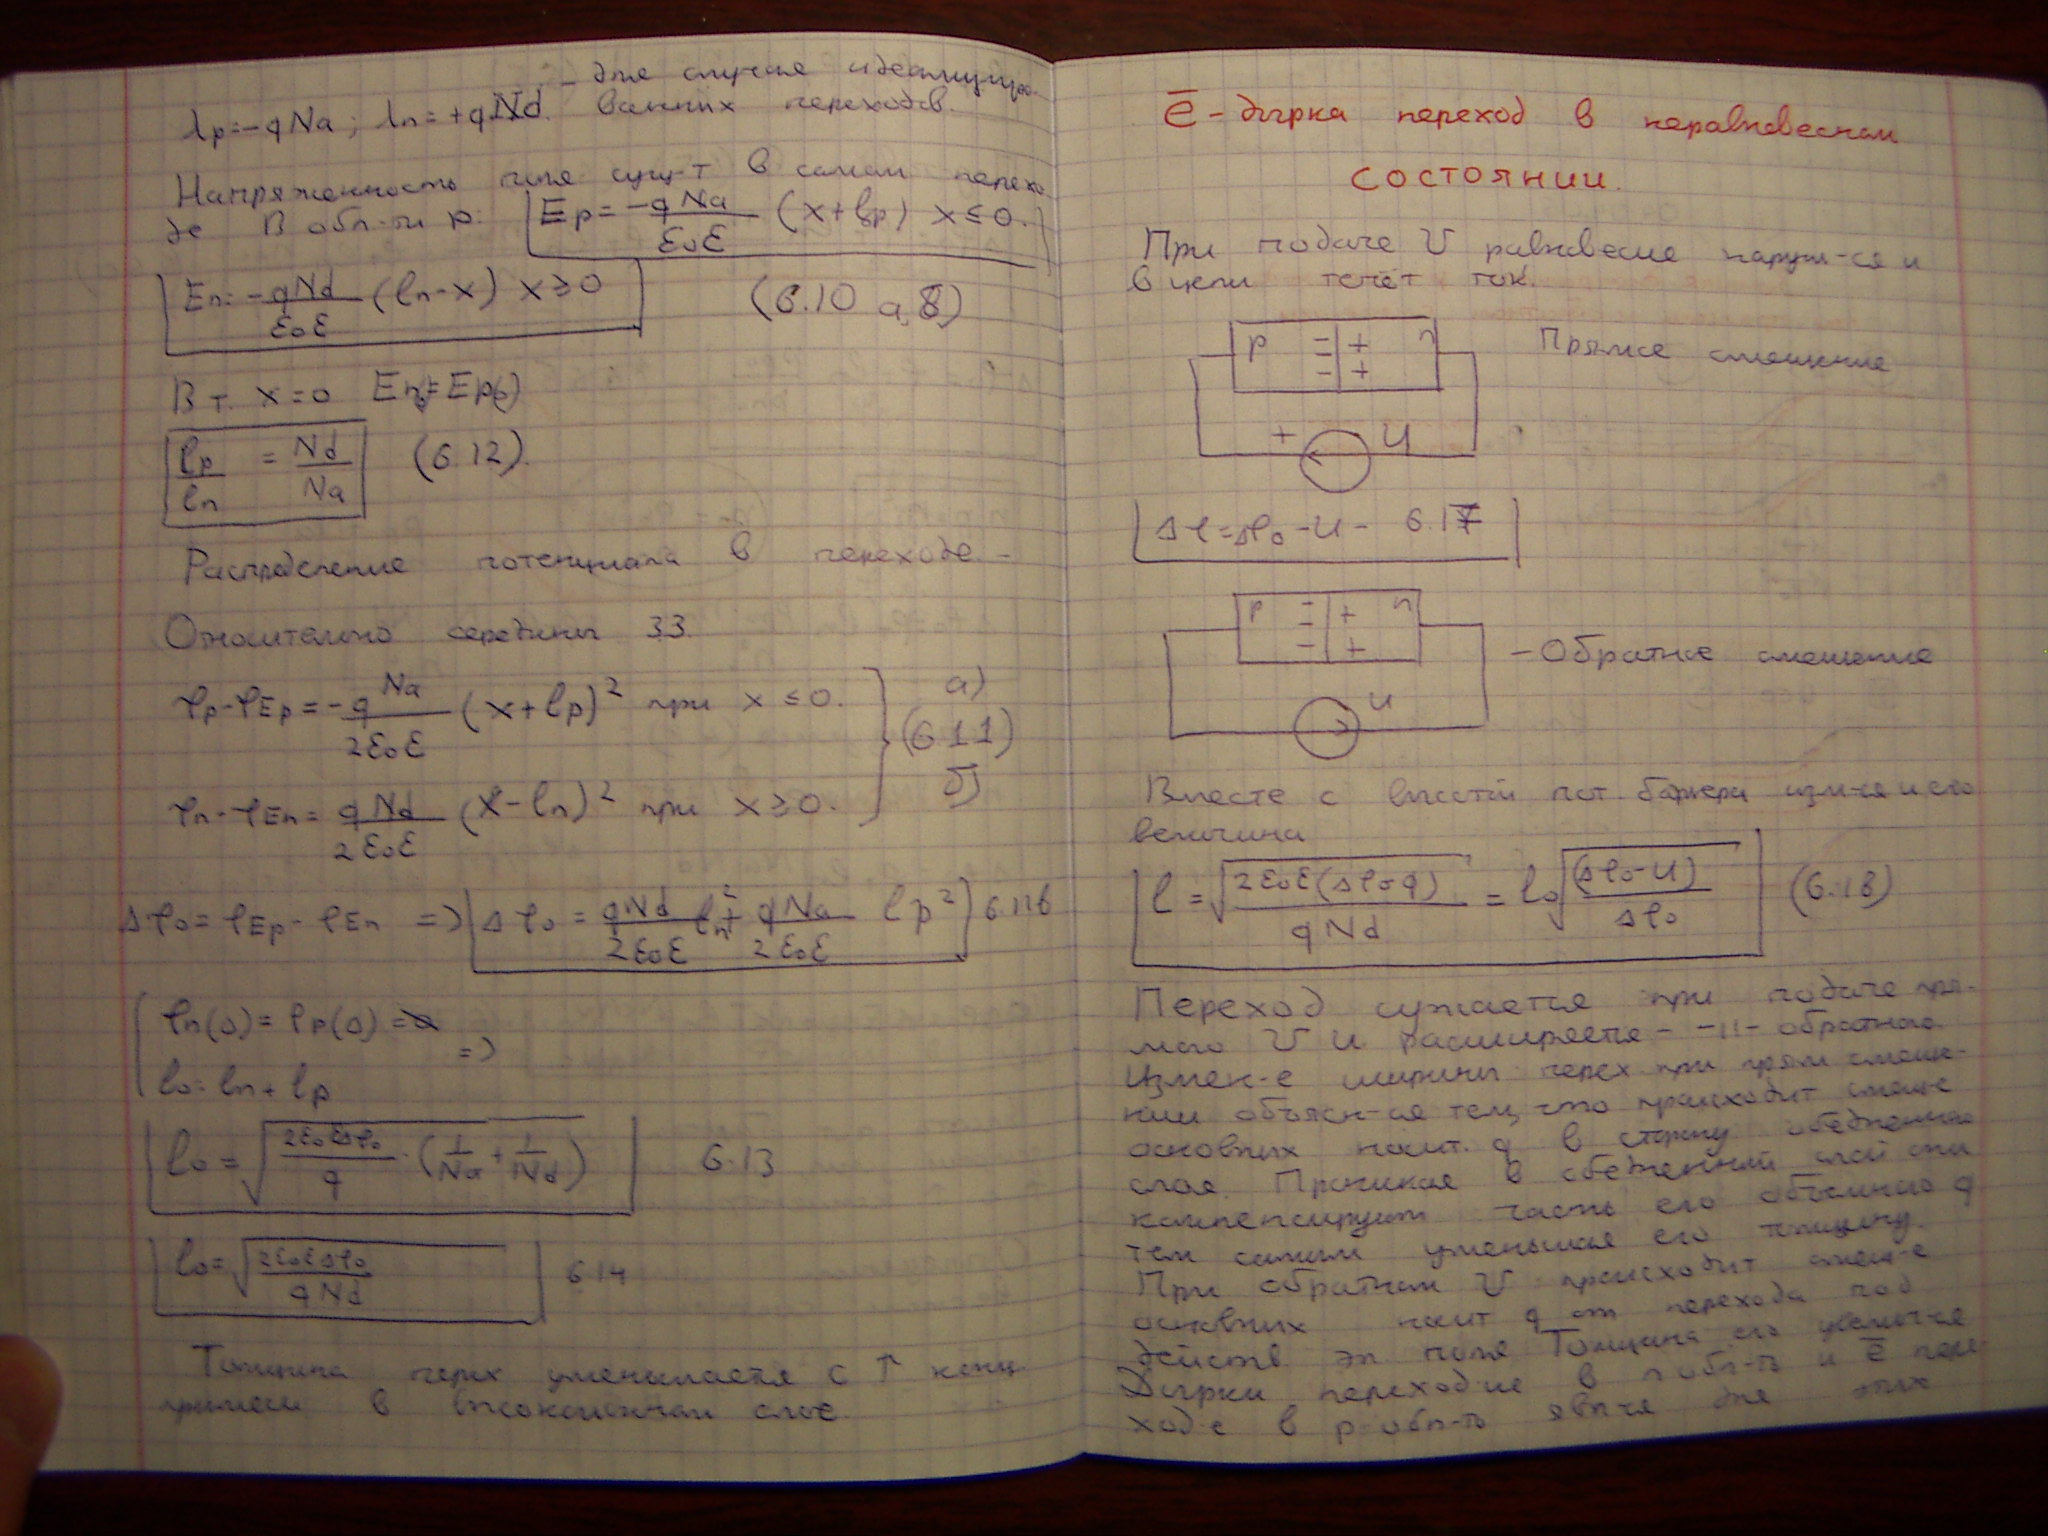 – для случая идеализиро-
λp=-qNa; λn=+qNd. ванных переходов.
Напряженность поля сущ-т в самом перехо
де В обл-ти p: Ep=-qNa/ε₀ε (x+lp) x≤0.
En=-qNd/ε₀ε (ln-x) x≥0 (6.10 а,б)
В т. x=0 En(0)=Ep(0)
lp/ln = Nd/Na (6.12).
Распределение потенциала в переходе –
Относительно середины ЗЗ.
φp-φEp=-qNa/2ε₀ε (x+lp)² при x≤0. а)
(6.11)
φn-φEn=qNd/2ε₀ε (x-ln)² при x≥0. б)
Δφ₀=φEp-φEn => Δφ₀=qNd/2ε₀ε ln²+qNa/2ε₀ε lp² 6.11в
φn(0)=φp(0)=
=>
l₀=ln+lp
l₀=√(2ε₀εΔφ₀/q·(1/Na+1/Nd)) 6.13
l₀=√(2ε₀εΔφ₀/qNd) 6.14
Толщина перех уменьшается с ↑ конц.
примеси в высокоомном слое
ē-дырка переход в неравновесном
состоянии.
При подаче U равновесие наруш-ся и
в цепи течёт ток.
p - + n Прямое смещение
- +
- +
+ U
Δφ=Δφ₀-U - 6.17
p - + n
- – Обратное смещение
- +
U
Вместе с высотой пот. барьера изм-ся и его
величина
l=√(2ε₀ε(Δφ₀-q)/qNd)=l₀√((Δφ₀-U)/Δφ₀) (6.18)
Переход сужается при подаче пря-
мого U и расширяется - -"- обратного.
Измен-е ширины перех при прям смеще-
нии объясн-ся тем, что происходит смещ-е
основных носит. q в сторону обедненного
слоя. Проникая в обедненный слой они
компенсируют часть его объемного q
тем самым уменьшая его толщину.
При обратном U происходит смещ-е
основных носит q от перехода под
действ эл поля Толщина его увелич-ся
Дырки переход-ие в n обл-ть и ē пере-
ход-е в p-обл-ть явл-ся для этих